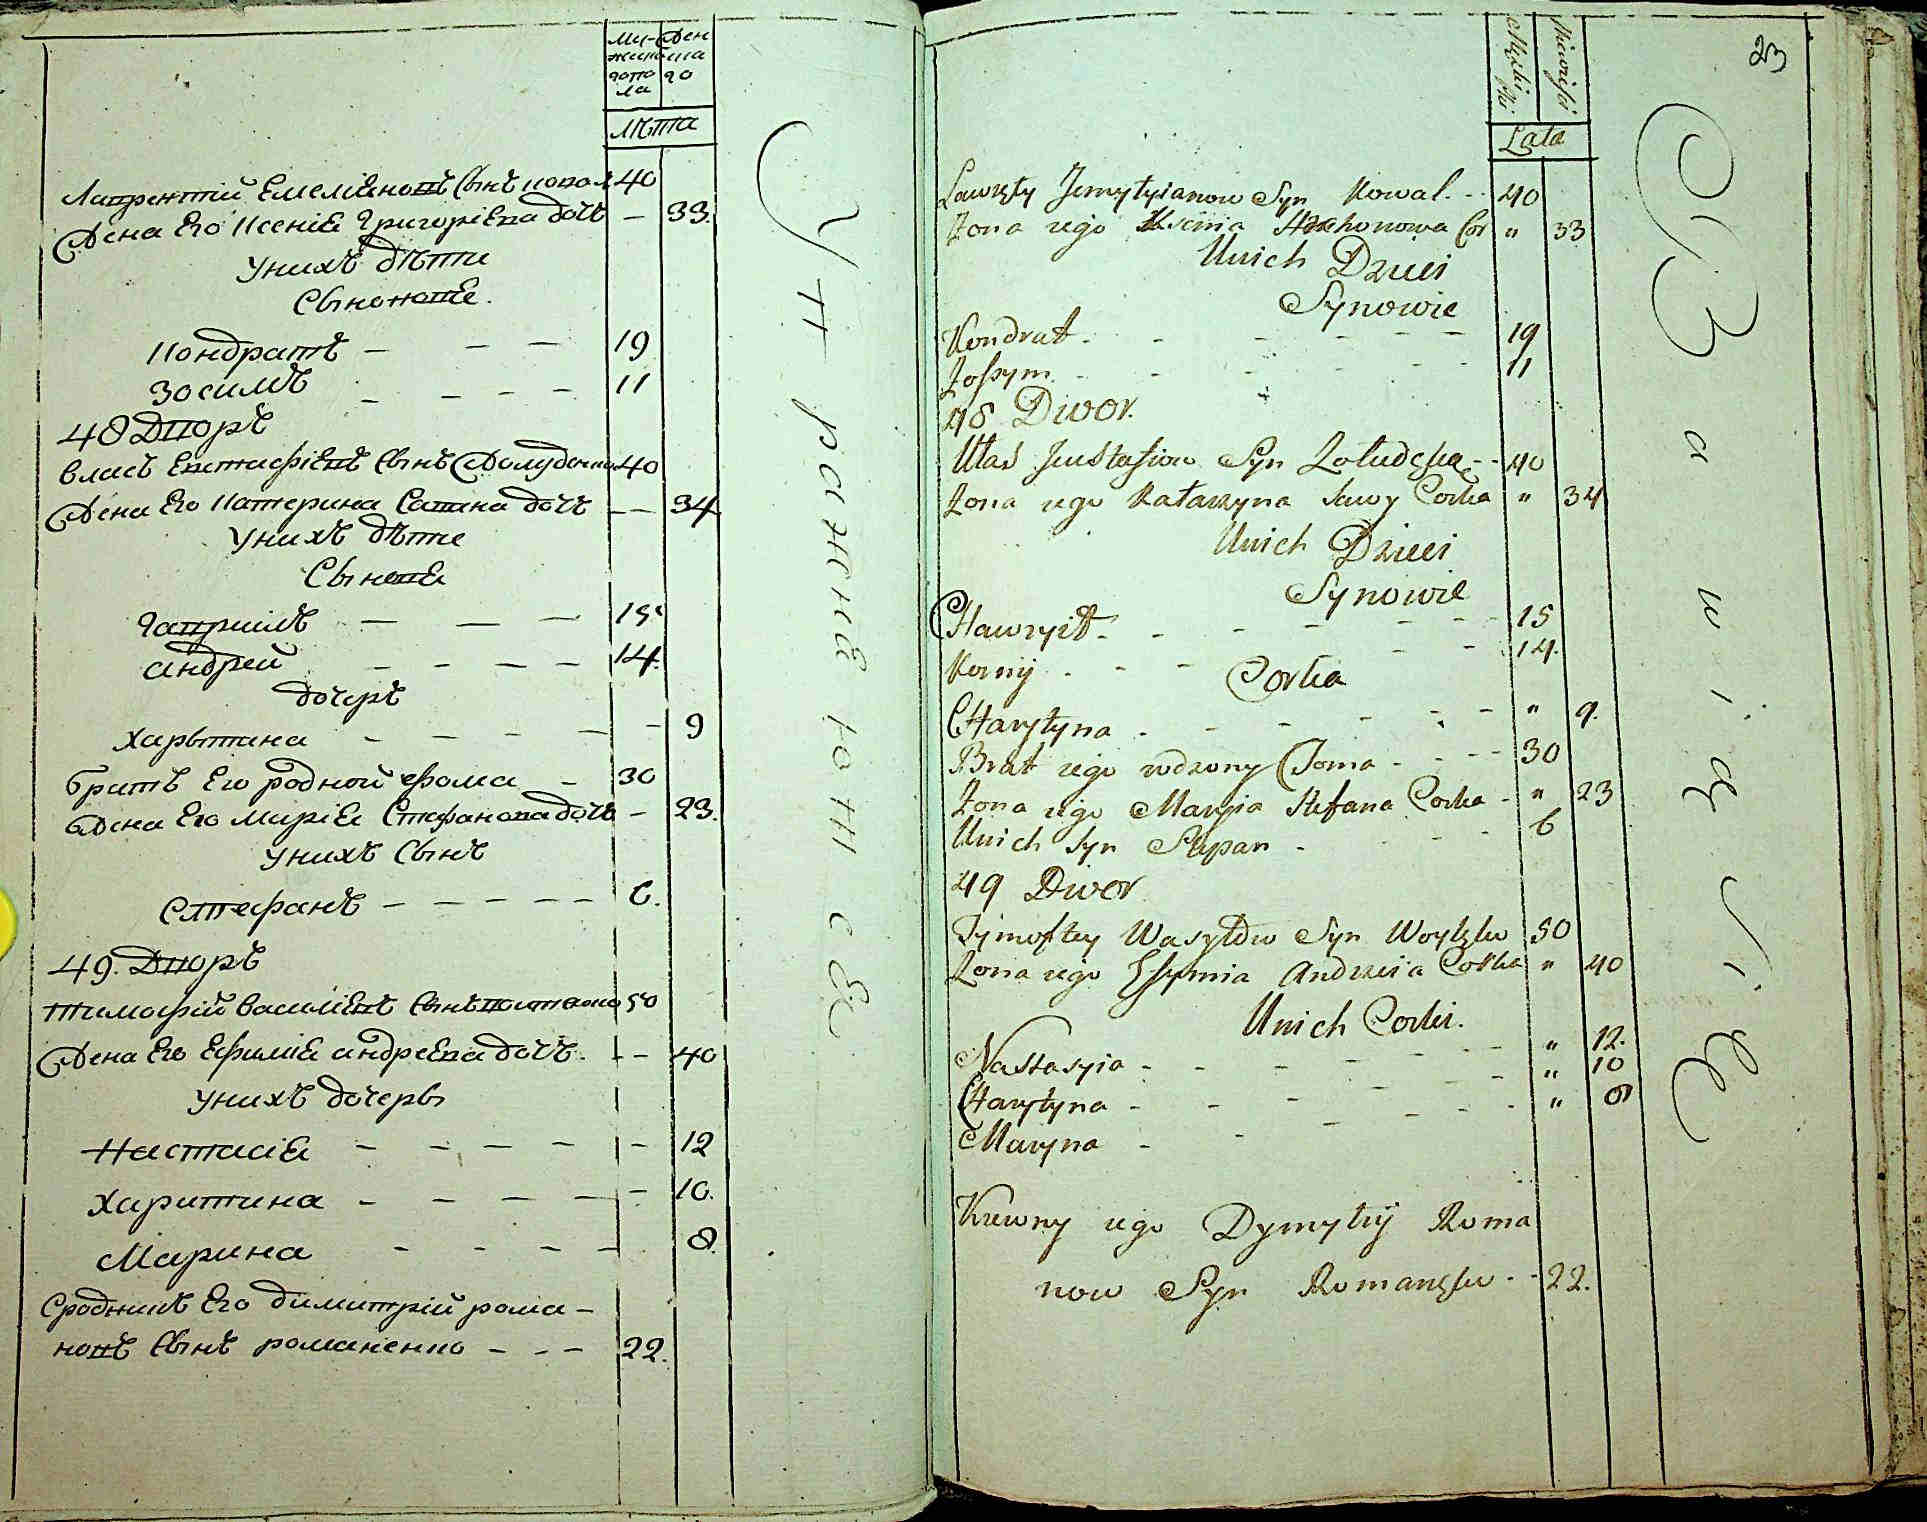 Му-
жеска
гопо
ла
Жен
ска
го
лѣта
Лаврентій Емеліяновъ Сынъ ковал 40
Жена Его Ксенія Григоріева дочь — 33.
У нихъ дѣти
Сыновѣ.
Кондратъ — — — 19
Зосимъ — — — — 11
48 Дворъ
Власъ Евстафіевъ Сынъ Жолудочко 40
Жена Его Катерина Савина дочь — — 34
У нихъ дѣти
Сыновя
Гаврилъ — — — 15
Андрей — — — — 14.
дочеръ
Харытина — — — — — — 9
братъ Его родной Фома — 30
Жена Его Марія Стефанова дочь — 23.
У нихъ Сынъ
Стефанъ — — — — — 6.
49. Дворъ
Тимофій Василіевъ Сынъ 50
Жена Его Ефимія андреева дочь. — — 40
У нихъ дочеры
Настасія — — — — — — 12
Харитина — — — — — 10.
Марина — — — — 8.
Сродникъ Его димитрій рома—
новъ Сынъ романенко — — — 22.
Ураженіе
23
Męski
Lata
Ławryty Jemyłyianow Syn Kowal. - - 40
Żona iego Ksenia Cor " 33
Unich Dzieci
Synowie
Kondrat - - - - - 19
Zosym - - - - - 11
48 Dwor.
Ułas Jewstafiow Syn - - 40
Żona iego Katarzyna Sawy Corka " 34
Unich Dzieci
Synowie
Hawryił - - - - - - 15
Korny - - - - 14.
Corka
Harytyna - - - - - - " 9.
Brat iego rodzony Toma - - - - 30
Żona iego Maryia Stefana Corka - " 23
Unich Syn Stepan - - - 6
49 Dwor
Tymoftey Wasylow Syn Woytzko 50
Żona iego Efymia Andrzeia Corka " 40
Unich Corki.
Nastasyia - - - - - - " 12.
Harytyna - - - - - - " 10
Maryna - - - - - - " 8
Krewny iego Dymytry Roma
now Syn Romanzko - - 22.